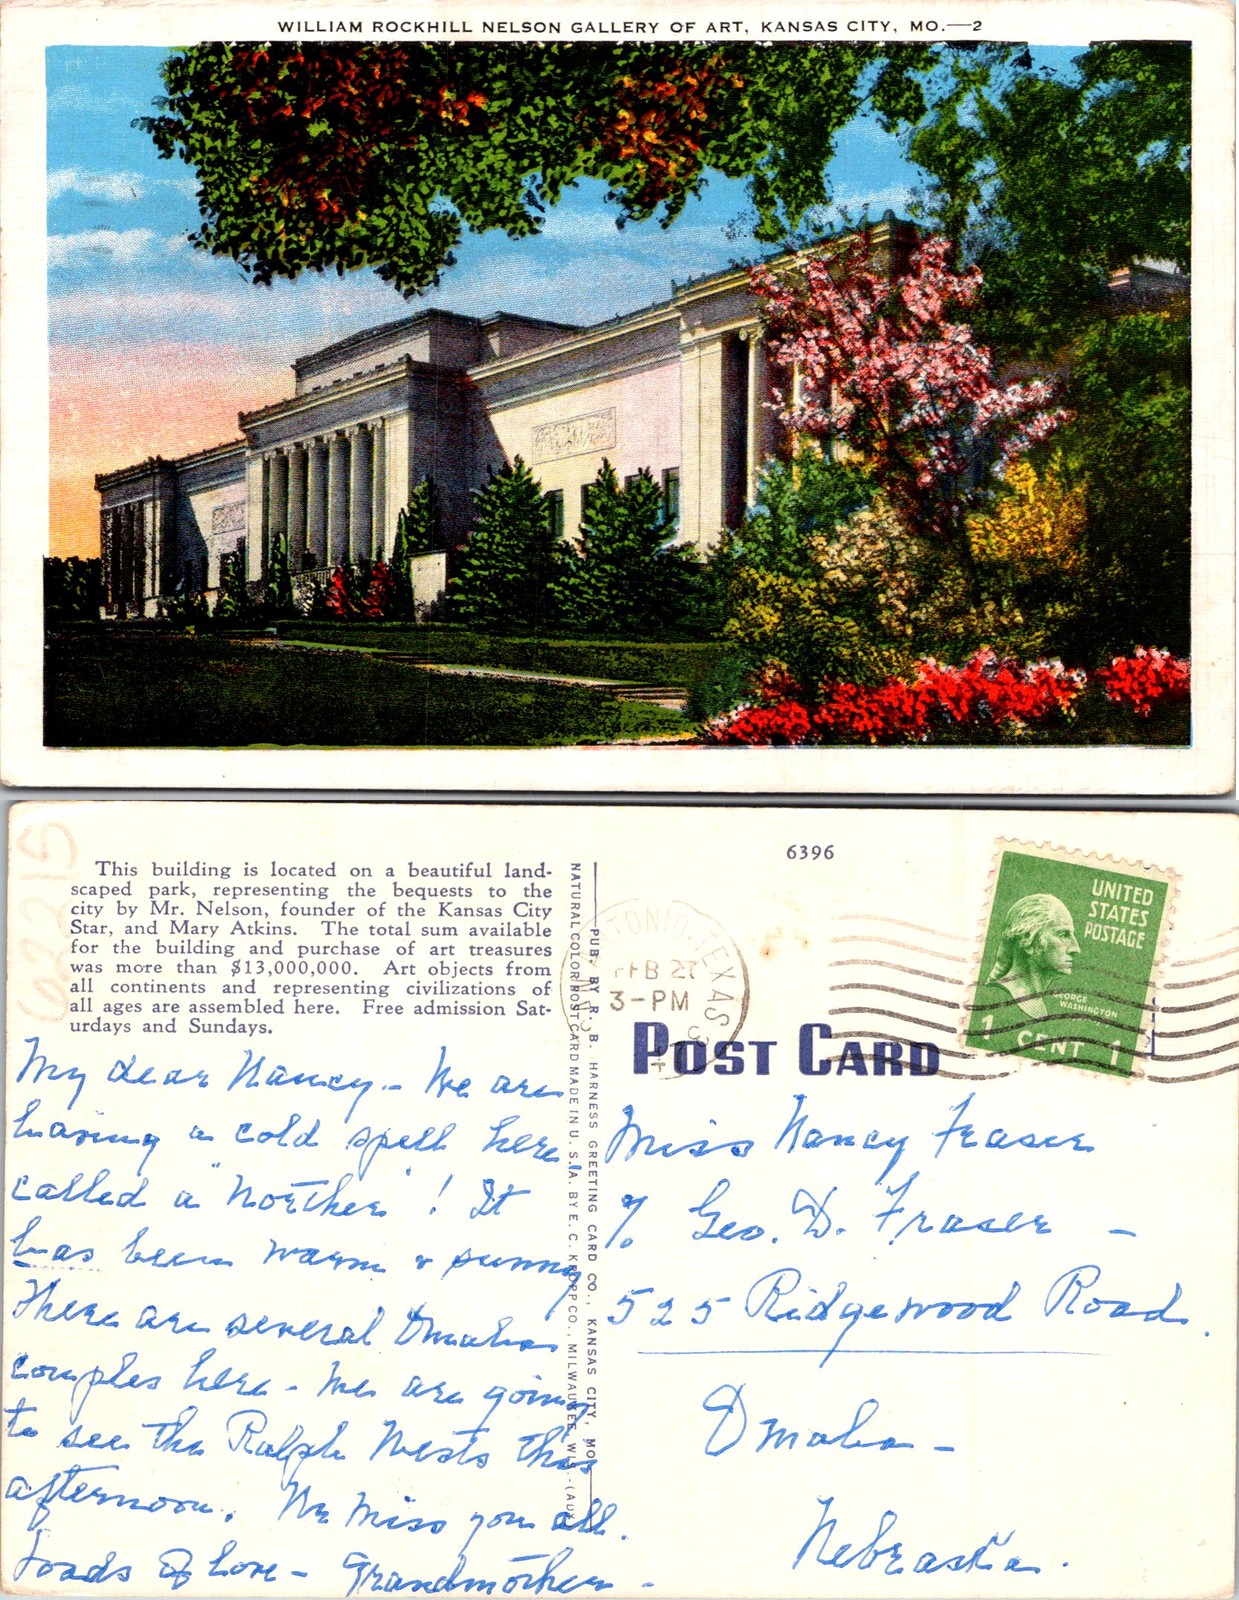 WILLIAM ROCKHILL NELSON GALLERY OF ART, KANSAS CITY, MO.—2
This building is located on a beautiful land-
scaped park, representing the bequests to the
city by Mr. Nelson, founder of the Kansas City
Star, and Mary Atkins. The total sum available
for the building and purchase of art treasures
was more than $13,000,000. Art objects from
all continents and representing civilizations of
all ages are assembled here. Free admission Sat-
urdays and Sundays.
My dear Nancy - We are
having a cold spell here
called a "Norther"! It
has been warm & sunny
There are several Omaha
couples here - We are going
to see the Ralph Wests this
afternoon. We miss you all.
Loads of love - Grandmother -
NATURAL COLOR POST CARD MADE IN U. S. A. BY E. C. KROPP CO., MILWAUKEE, WIS.
PUB. BY R. B. HARNESS GREETING CARD CO., KANSAS CITY, MO.
6396
TONIO, TEXAS
FEB 27
3-PM
POST CARD
UNITED
STATES
POSTAGE
GEORGE
WASHINGTON
1 CENT 1
Miss Nancy Fraser
% Geo. D. Fraser -
525 Ridgewood Road.
Omaha -
Nebraska.